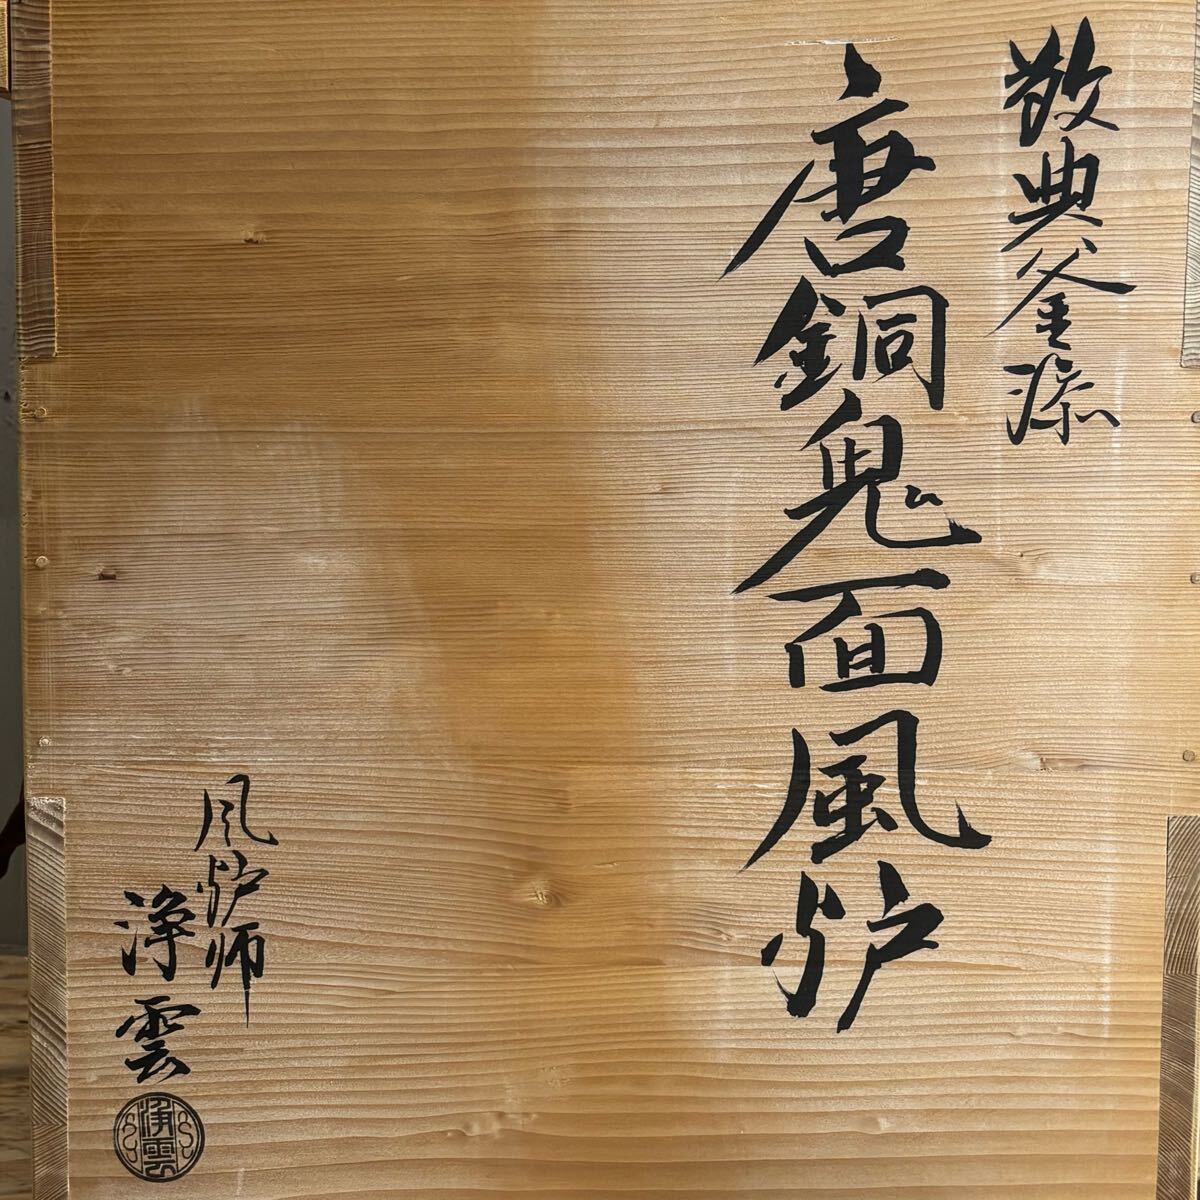 敬典釜添
唐銅鬼面風炉
風炉师
浄雲
浄雲